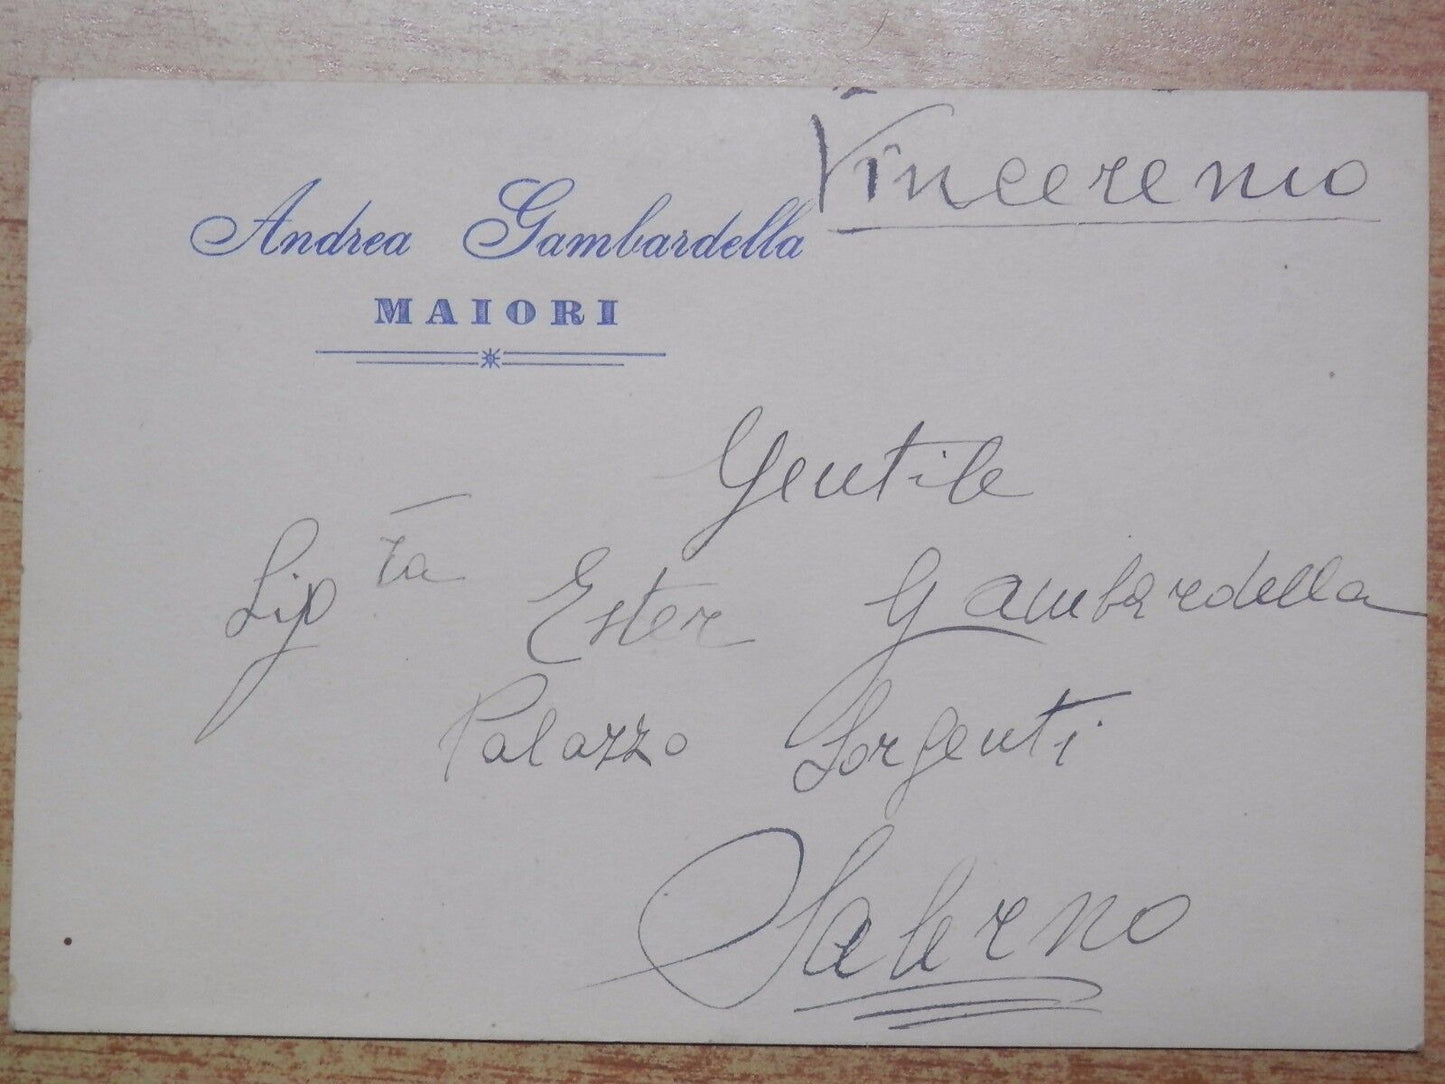 Vinceremo
Andrea Gambardella
MAIORI
Gentile
Sig ra Ester Gambardella
Palazzo Sorgenti
Salerno